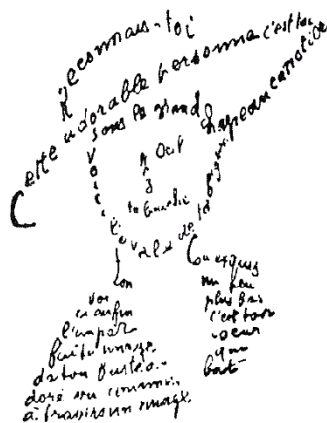 Reconnais-toi
Cette adorable personne c'est toi
sous le grand chapeau canotier
Œil
Nez
la bouche
Voici l'ovale de ta figure
ton
cou
Voi
ci enfin
l'impar
faite image
de ton buste a
doré vu comme
à travers un nuage
un peu
plus bas
c'est ton
cœur
qui
bat